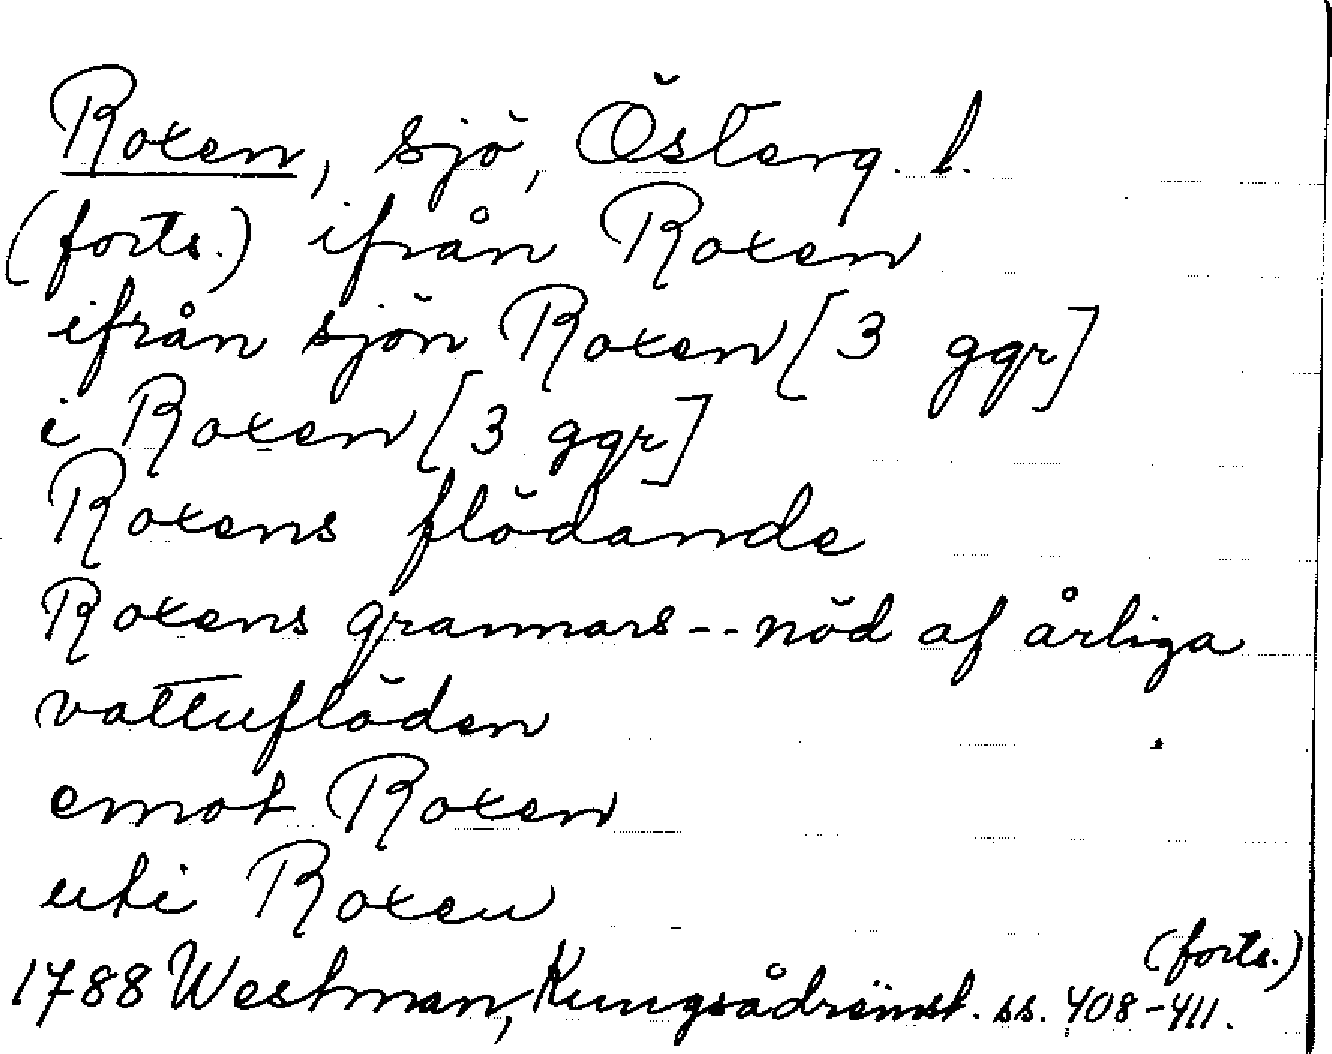 Roxen, sjö, Österg. l.
(forts.) ifrån Roxen
ifrån sjön Roxen [3 ggr]
i Roxen [3 ggr]
Roxens flödande
Roxens grannars -- nöd af årliga
vattuflöden
emot Roxen
uti Roxen
(forts.)
1788 Westman, Kungsådreinst. ss. 408-411.